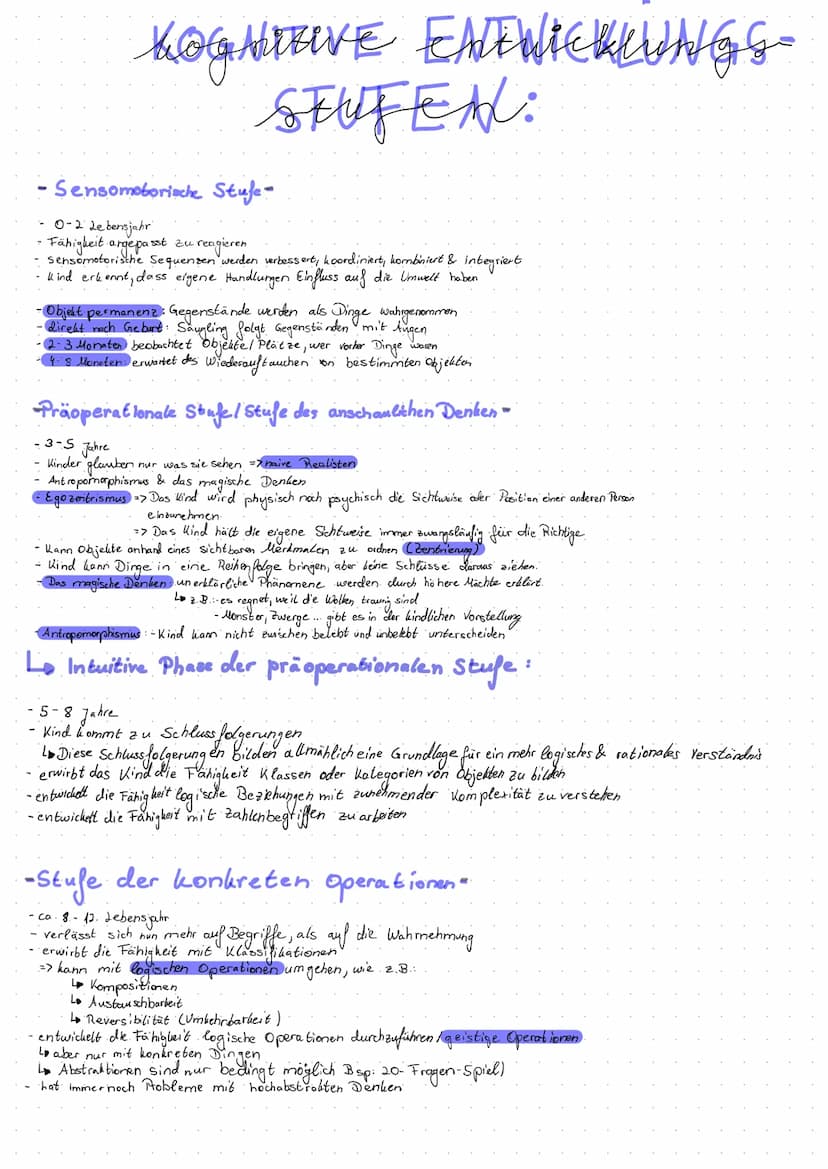 KOGNITIVE ENTWICKLUNGS-
STUFEN:
- Sensomotorische Stufe -
- 0-2 Lebensjahr
- Fähigkeit angepasst zu reagieren
- sensomotorische Sequenzen werden verbessert, koordiniert, kombiniert & integriert
- Kind erkennt, dass eigene Handlungen Einfluss auf die Umwelt haben
- Objektpermanenz: Gegenstände werden als Dinge wahrgenommen
- direkt nach Geburt: Säugling folgt Gegenständen mit Augen
- 2-3 Monaten beobachtet Objekte/Plätze, wer vorher Dinge waren
- 4-8 Monaten erwartet das Wiederauftauchen von bestimmten Objekten
- Präoperationale Stufe/Stufe des anschaulichen Denken -
- 3-5 Jahre
- Kinder glauben nur was sie sehen => naive Realisten
- Antropomorphismus & das magische Denken
- Egozentrismus => Das Kind wird physisch noch psychisch die Sichtweise oder Position einer anderen Person
einzunehmen
=> Das Kind hält die eigene Sichtweise immer zwangsläufig für die Richtige
- Kann Objekte anhand eines sichtbaren Merkmalen zu ordnen (Zentrierung)
- Kind kann Dinge in eine Reihenfolge bringen, aber keine Schlüsse daraus ziehen.
- Das magische Denken unerklärliche Phänomene werden durch höhere Mächte erklärt
↳ z.B.: - es regnet, weil die Wolken traurig sind
- Monster, Zwerge ... gibt es in der kindlichen Vorstellung
- Antropomorphismus: - Kind kann nicht zwischen belebt und unbelebt unterscheiden
↳ Intuitive Phase der präoperationalen Stufe:
- 5-8 Jahre
- Kind kommt zu Schlussfolgerungen
↳ Diese Schlussfolgerungen bilden allmählich eine Grundlage für ein mehr logisches & rationales Verständnis
- erwirbt das Kind die Fähigkeit Klassen oder Kategorien von Objekten zu bilden
- entwickelt die Fähigkeit logische Beziehungen mit zunehmender Komplexität zu verstehen
- entwickelt die Fähigkeit mit Zahlenbegriffen zu arbeiten
- Stufe der konkreten Operationen -
- ca. 8-12. Lebensjahr
- verlässt sich nun mehr auf Begriffe, als auf die Wahrnehmung
- erwirbt die Fähigkeit mit Klassifikationen
=> kann mit logischen Operationen umgehen, wie z.B.:
↳ Kompositionen
↳ Austauschbarkeit
↳ Reversibilität (Umkehrbarkeit)
- entwickelt die Fähigkeit logische Operationen durchzuführen/geistige Operationen
↳ aber nur mit konkreten Dingen
↳ Abstraktionen sind nur bedingt möglich Bsp: 20-Fragen-Spiel)
- hat immer noch Probleme mit hochabstrakten Denken